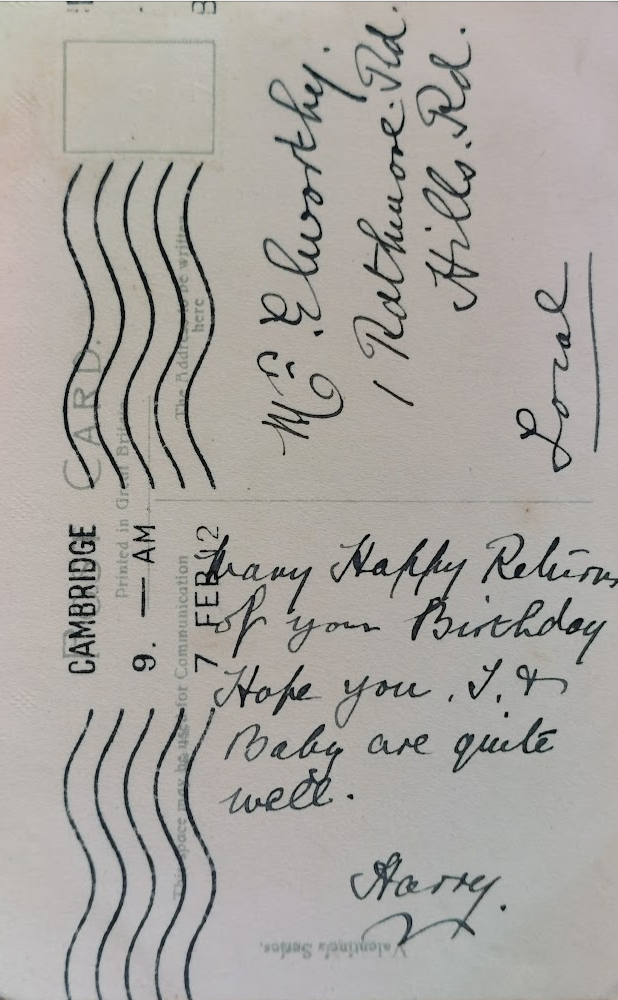 CARD.
Printed in Great Britain
This space may be used for Communication
The Address to be written
here
CAMBRIDGE
9. — AM
7 FEB 12
Many Happy Returns
of your Birthday
Hope you, J. &
Baby are quite
well.
Harry.
Mrs. Elworthy.
1 Rathmore. Rd.
Hills. Rd.
Local
Valentine's Series.